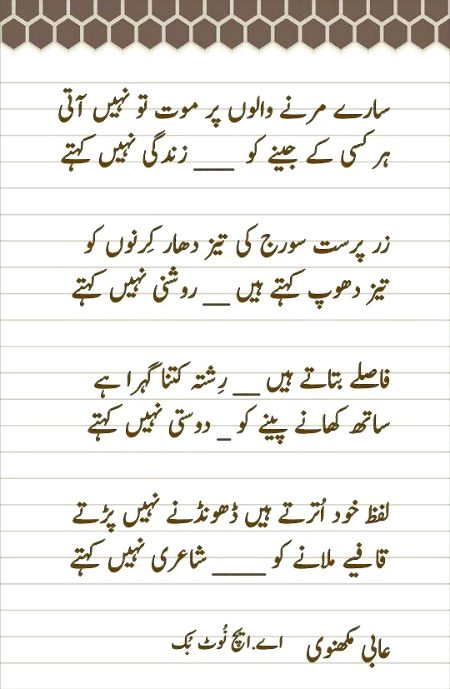 سارے مرنے والوں پر موت تو نہیں آتی
ہر کسی کے جینے کو ____ زندگی نہیں کہتے
زر پرست سورج کی تیز دھار کِرنوں کو
تیز دھوپ کہتے ہیں __ روشنی نہیں کہتے
فاصلے بتاتے ہیں __ رِشتہ کتنا گہرا ہے
ساتھ کھانے پینے کو _ دوستی نہیں کہتے
لفظ خود اُترتے ہیں ڈھونڈنے نہیں پڑتے
قافیے ملانے کو _____ شاعری نہیں کہتے
عابی مکھنوی اے.ایچ نُوٹ بُک